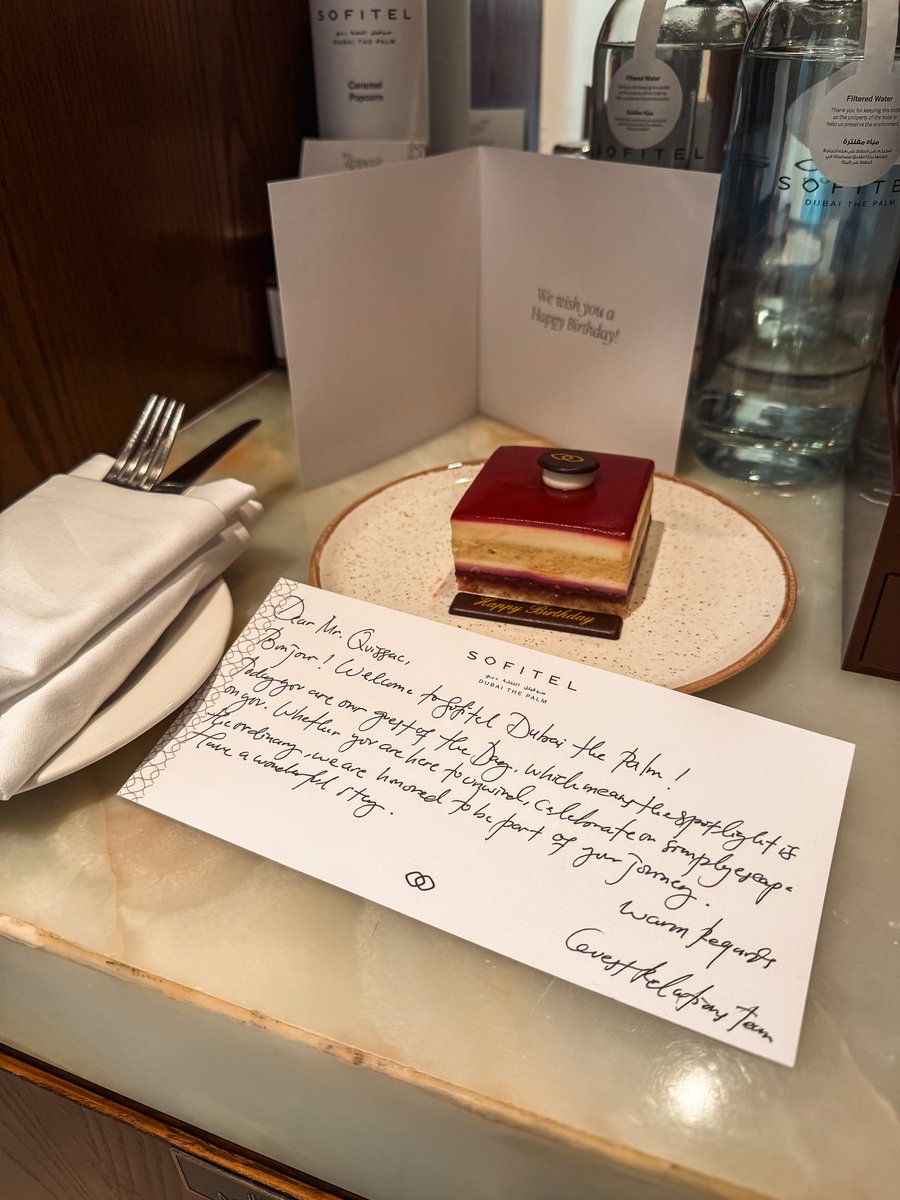 SOFITEL
DUBAI THE PALM
Caramel
Popcorn
We wish you a
Happy Birthday!
Filtered Water
SOFITEL
Filtered Water
Thank you for keeping this bottle
as the property of the hotel to
help us preserve the environment.
مياه مفلترة
SOFITE
DUBAI THE PALM
Happy Birthday
SOFITEL
سوفيتل النخلة دبي
DUBAI THE PALM
Dear Mr. Quissac,
Bonjour! Welcome to Sofitel Dubai the Palm!
Today you are our guest of the Day, which means the spotlight is
on you. Whether you are here to unwind, Celebrate or simply escap-
the ordinary, we are honored to be part of your journey.
Have a wonderful stay.
Warm Regards
Guest Relations Team